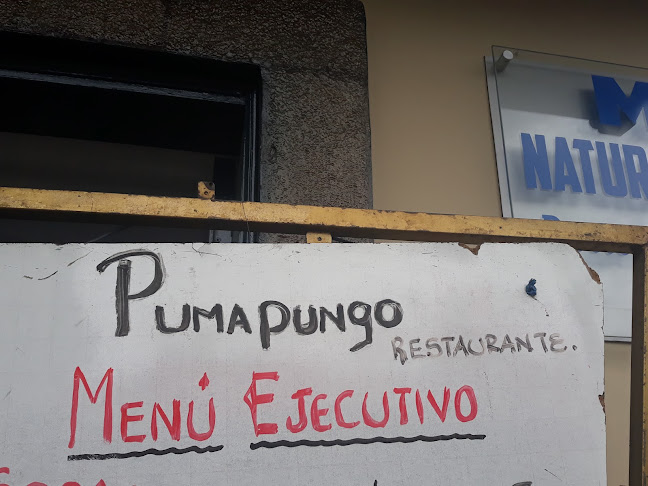 M
NATUR
Pumapungo
RESTAURANTE.
MENÚ EJECUTIVO